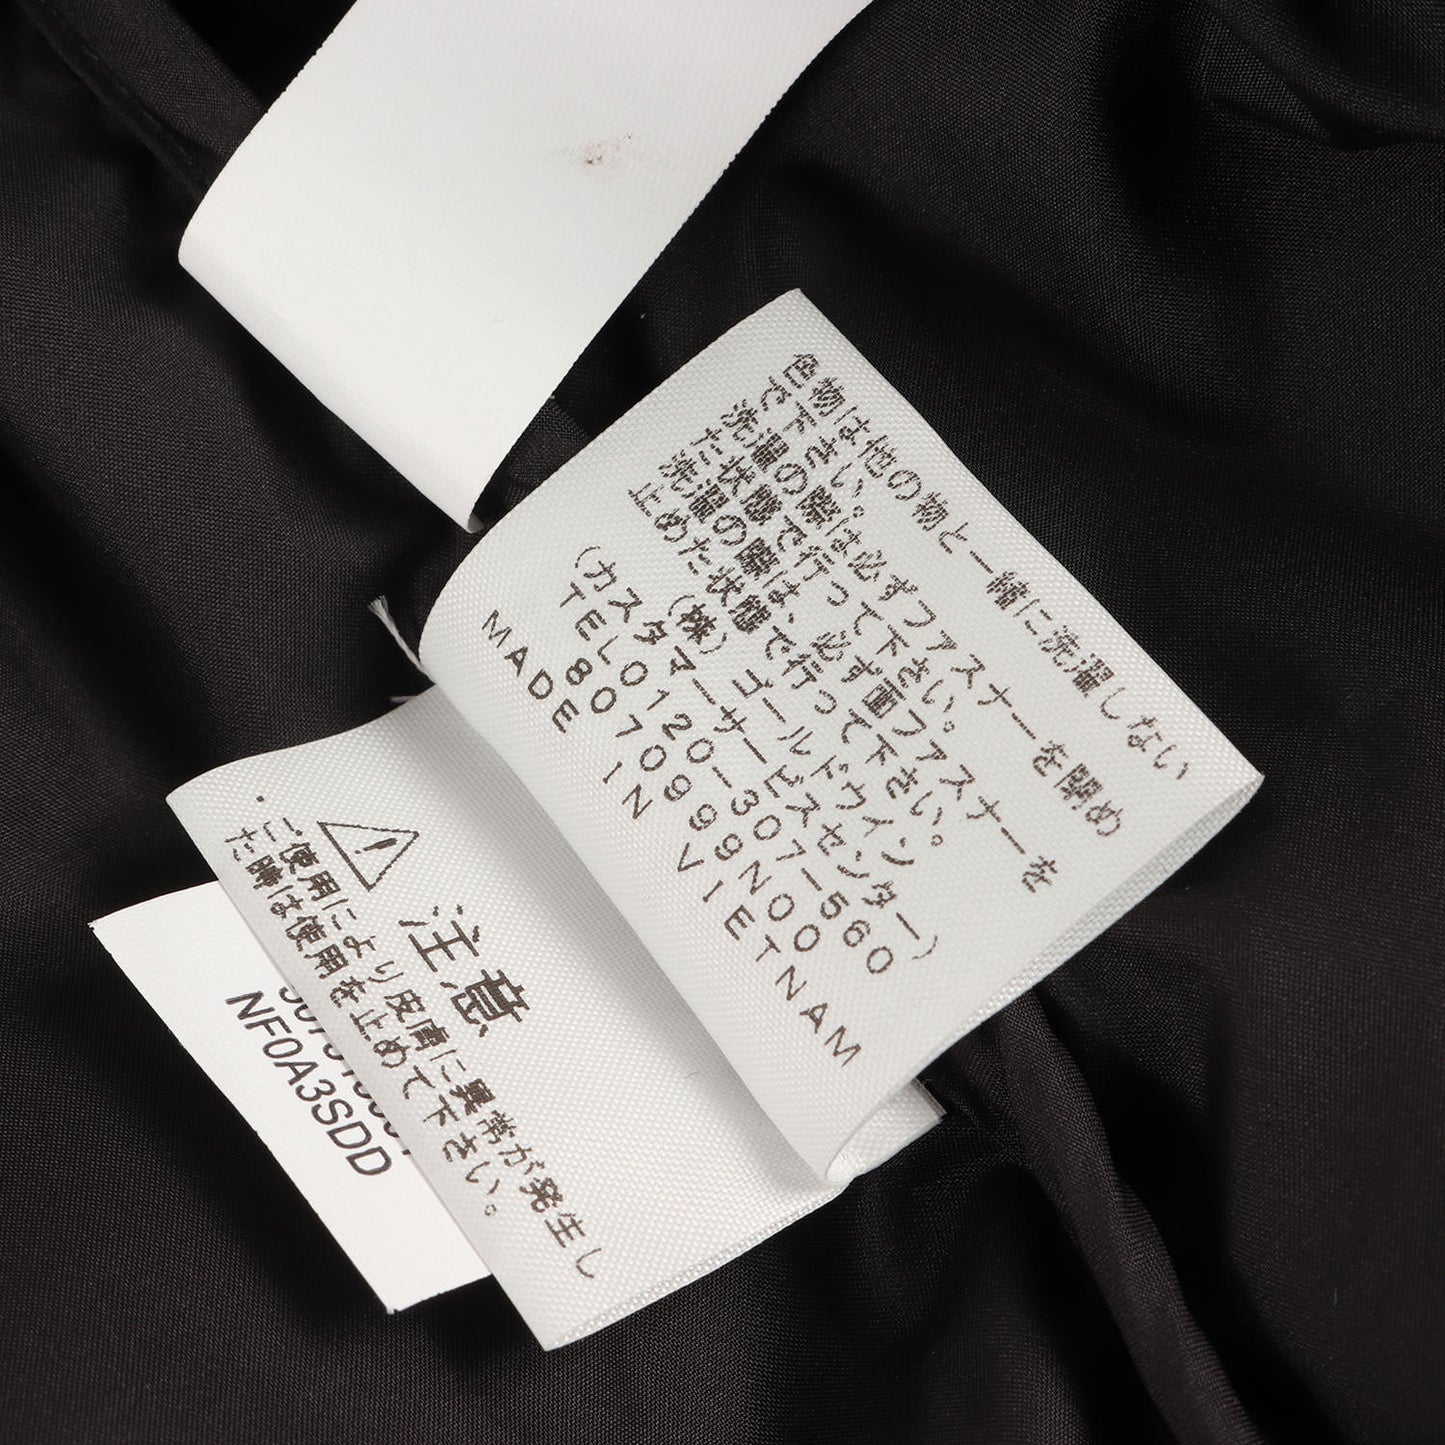 色物は他の物と一緒に洗濯しない
で下さい。
洗濯の際は必ずファスナーを閉め
た状態で行って下さい。
洗濯の際は、必ず面ファスナーを
止めた状態で行って下さい。
(株) ゴールドウイン
(カスタマーサービスセンター)
TEL0120-307-560
8070999N00
MADE IN VIETNAM
注意
・ご使用により皮膚に異常が発生し
た時は使用を止めて下さい。
NF0A3SDD